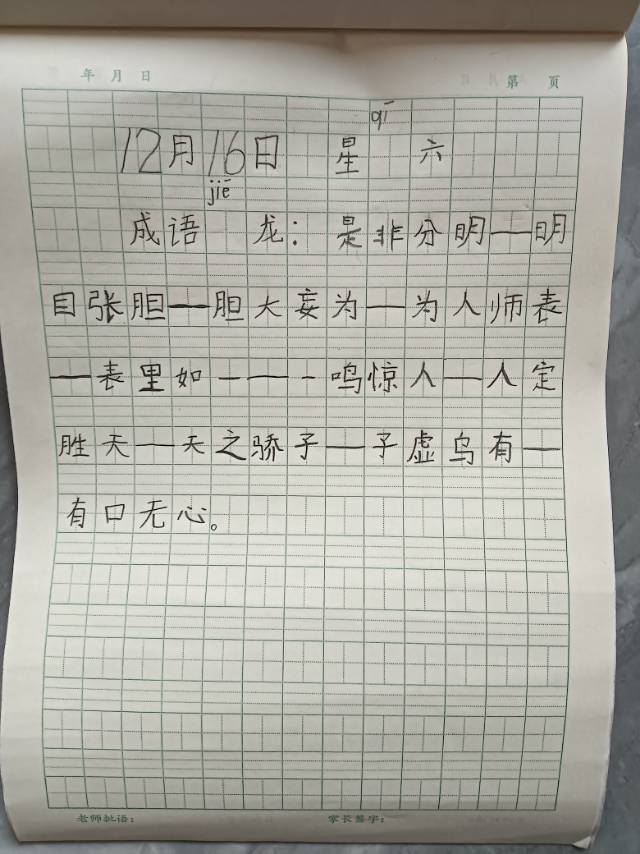 年 月 日 第 页
qī
12月16日 星 六
jiē
成语 龙：是非分明——明
目张胆——胆大妄为——为人师表
——表里如一——一鸣惊人——人定
胜天——天之骄子——子虚乌有——
有口无心。
老师批语： 家长签字：